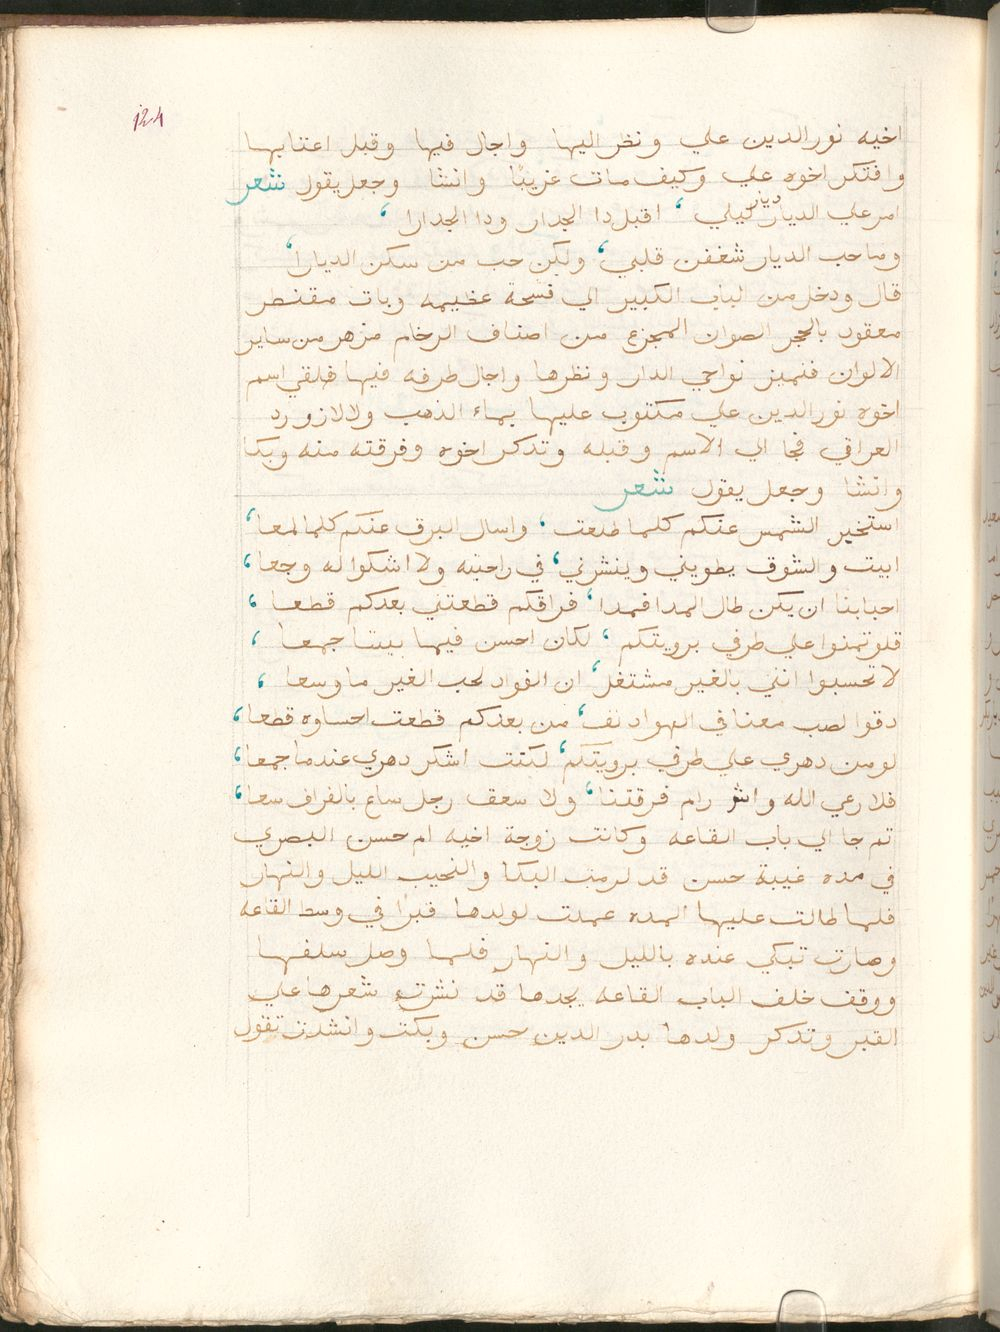 124
اخيه نور الدين علي ونظر اليها واجال فيها وقبل اعتابها
وافتكر اخوه علي وكيف مات غريبًا وانشا وجعل يقول شعر
امر علي الديار ديار ليلي ، اقبل دا الجدار ودا الجدارا ،
وما حب الديار شغفن قلبي ، ولكن حب من سكن الديارا ،
قال ودخل من الباب الكبير الي فسحة عظيمه وباب مقنطر
معقود بالحجر الصوان المجزع من اصناف الرخام مزهر من ساير
الالوان فتميز نواحي الدار ونظرها واجال طرفه فيها فلقي اسم
اخوه نور الدين علي مكتوب عليها بماء الذهب ولالازورد
العراقي فجا الي الاسم وقبله وتدكر اخوه وفرقته منه وبكا
وانشا وجعل يقول شعر
استخبر الشمس عنكم كلما طلعت ، واسال البرق عنكم كلما لمعا ،
ابيت والشوق يطويني وينشرني ، في راحتيه ولا اشكوا له وجعا ،
احبابنا ان يكن طال المدا فمدا ، فراقكم قطعتني بعدكم قطعا ،
فلو تمنوا علي طرفي برويتكم ، لكان احسن فيما بيننا جمعا ،
لا تحسبوا انني بالغير مشتغل ، ان الفواد لحب الغير ما وسعا ،
رقوا لصب معنا في الهوا دنف ، من بعدكم قطعت احساوه قطعا ،
لو من دهري علي طرفي برويتكم ، لكنت اشكر دهري عندما جمعا ،
فلا رعي الله واش رام فرقتنا ، ولا سعت رجل ساع بالفراق سعا ،
تم جا الي باب القاعه وكانت زوجة اخيه ام حسن البصري
في مده غيبة حسن قد لزمت البكا والنحيب الليل والنهار
فلما طالت عليها المده عملت لولدها قبرًا في وسط القاعه
وصارت تبكي عنده بالليل والنهار فلما وصل سلفها
ووقف خلف الباب القاعه يجدها قد نشرت شعرها علي
القبر وتدكر ولدها بدر الدين حسن وبكت وانشدت تقول